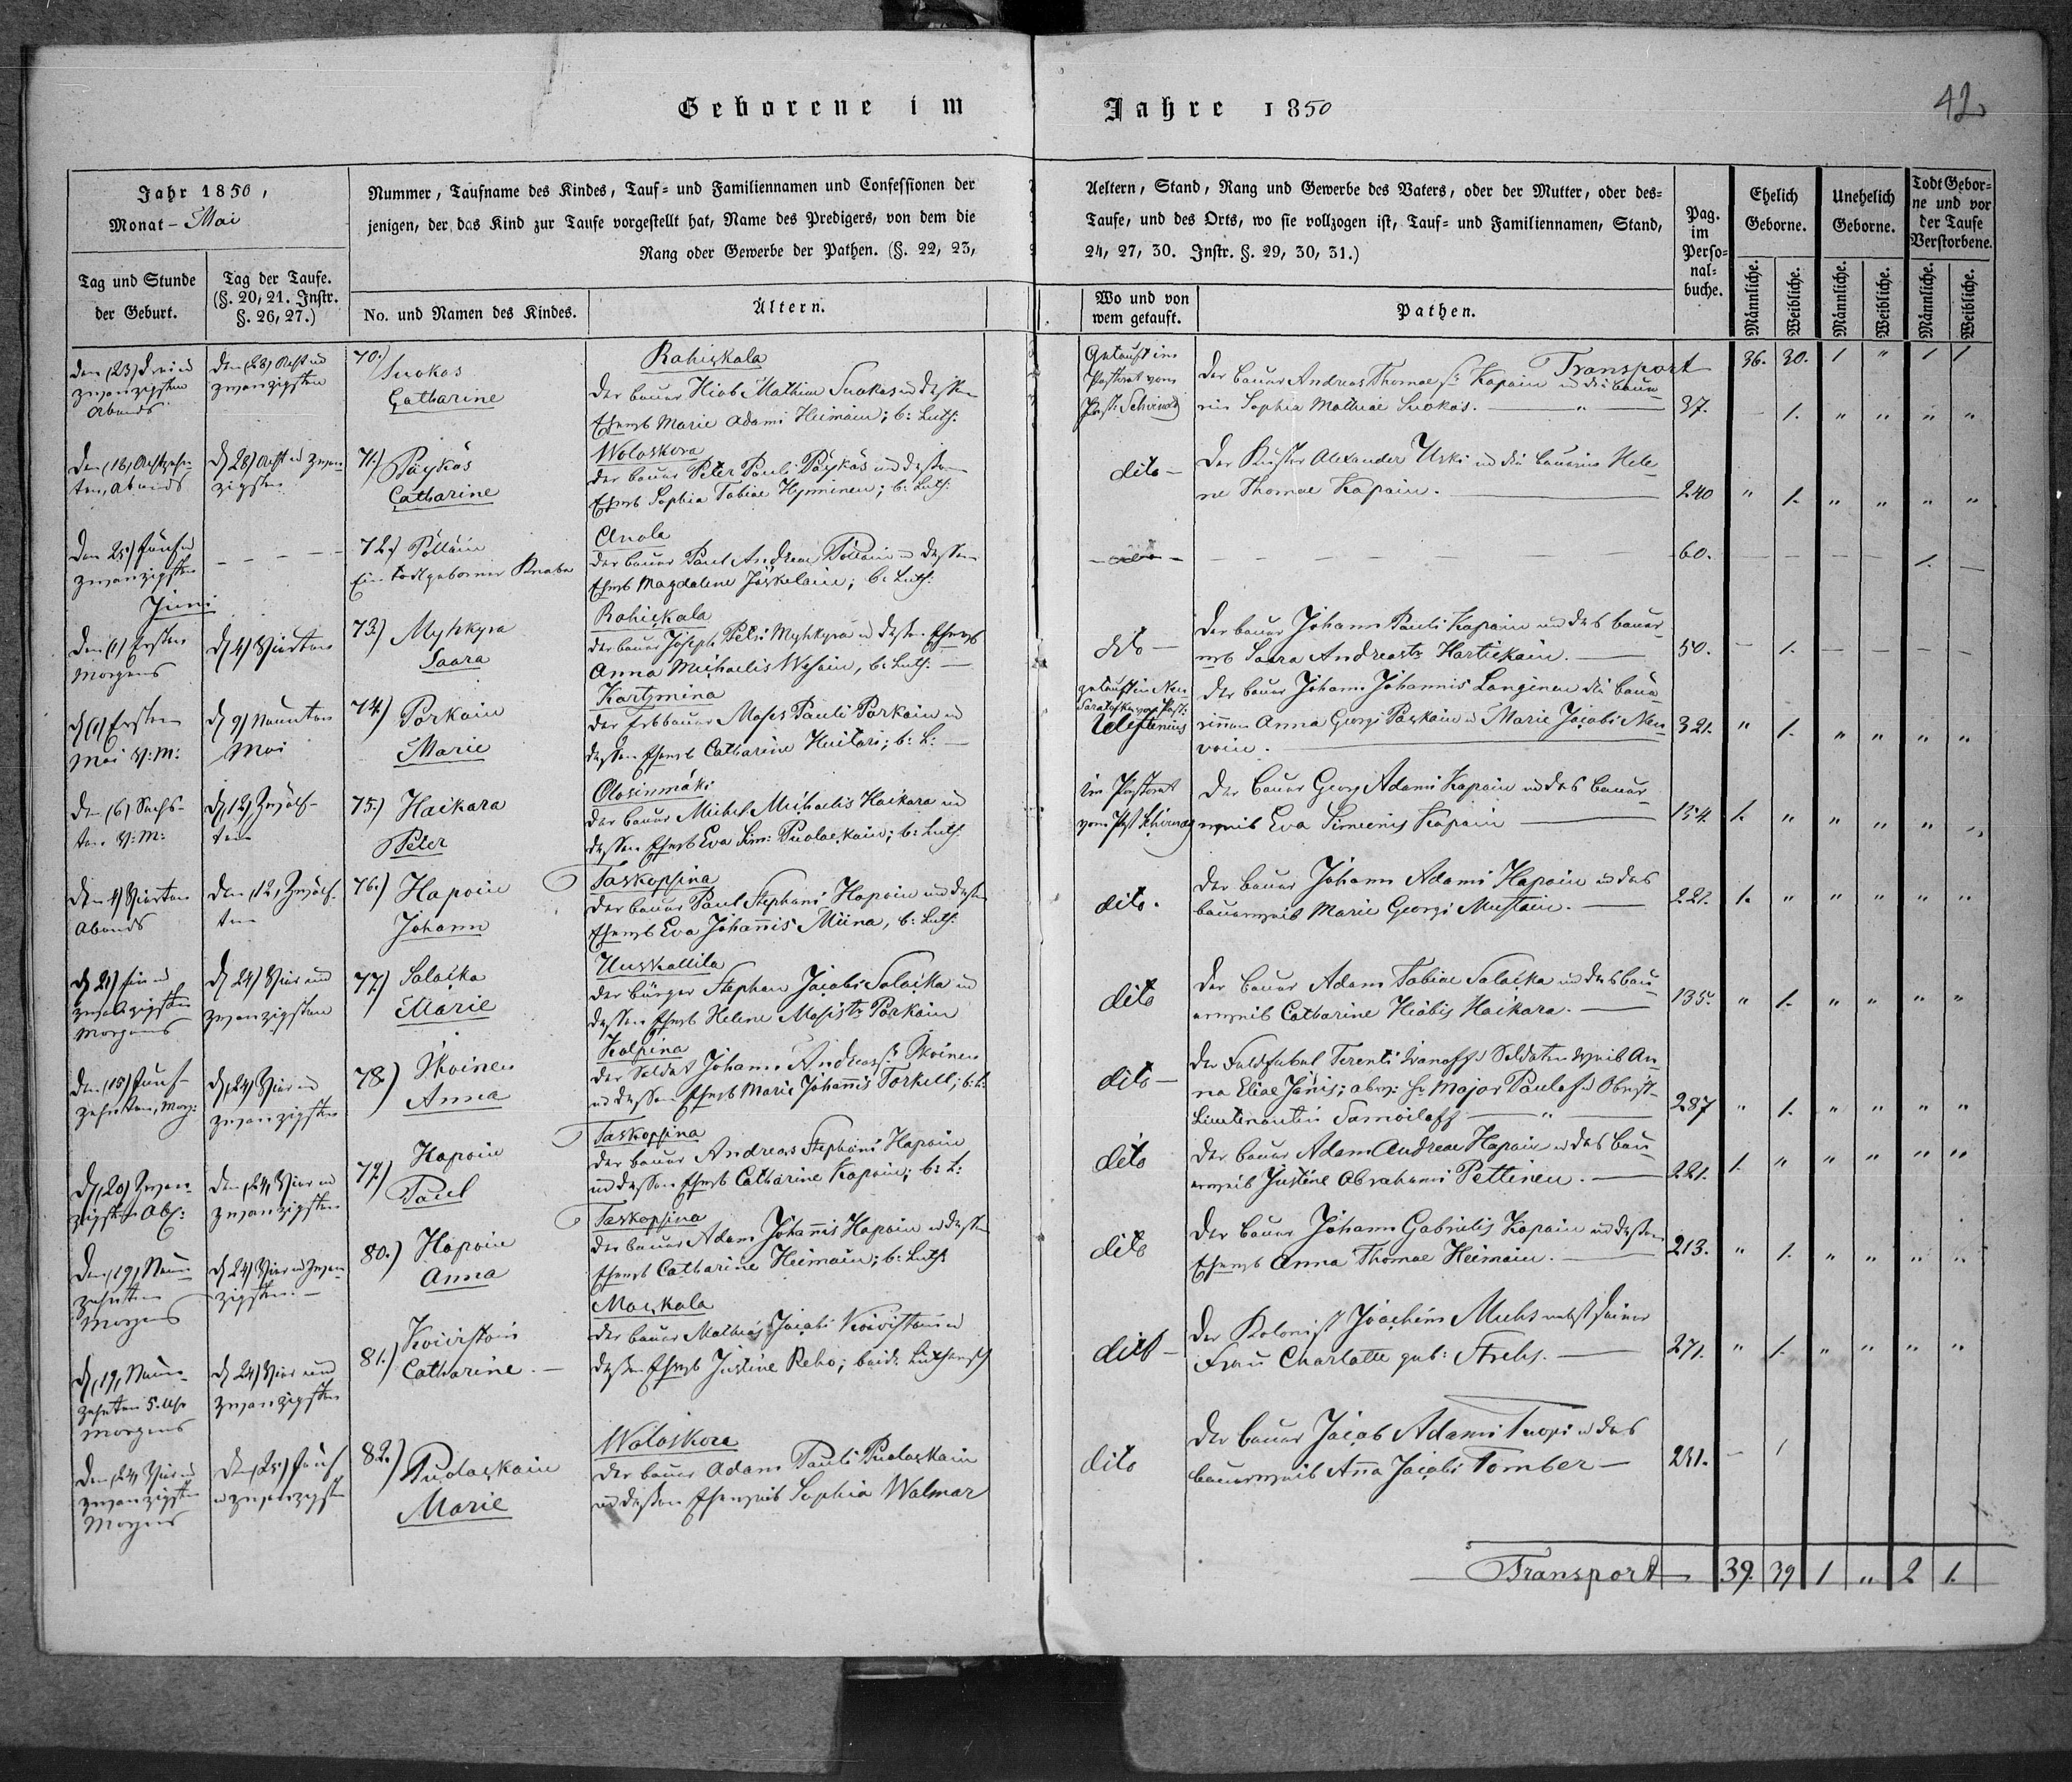 Geborene im Jahre 1850
42
Jahr 1850,
Monat – Mai
Tag und Stunde
der Geburt.
Tag der Taufe.
(§. 20, 21. Instr.
§. 26, 27.)
Nummer, Taufname des Kindes, Tauf- und Familiennamen und Confessionen der
jenigen, der das Kind zur Taufe vorgestellt hat, Name des Predigers, von dem die
Rang oder Gewerbe der Pathen. (§. 22, 23,
No. und Namen des Kindes.
Ältern.
Aeltern, Stand, Rang und Gewerbe des Vaters, oder der Mutter, oder des-
Taufe, und des Orts, wo sie vollzogen ist, Tauf- und Familiennamen, Stand,
24, 27, 30. Instr. §. 29, 30, 31.)
Wo und von
wem getauft.
Pathen.
Pag.
im
Perso-
nal-
buche.
Ehelich
Geborne.
Unehelich
Geborne.
Todt Gebor-
ne und vor
der Taufe
Verstorbene.
Männliche.
Weibliche.
Männliche.
Weibliche.
Männliche.
Weibliche.
Transport
36. 30. 1 " 1 1
den (23) drei und
zwanzigsten
Abends
den (28) Acht und
zwanzigsten
70.) Suokas
Catharine
Rahiskala
der Bauer Hiob Mathiae Suokas und dessen
Ehewb Marie Adami Heimäin; b: Luth:
Getauft im
Pastorat vom
Past:
der Bauer Andreas Thomae Kapain und die Baue
rin Sophia Mathiae Suokas. — " —
37. — 1. " " " "
den (18) Achtzehn-
ten, Abends
d 28) Acht u zwan-
zigsten
71.) Päykäs
Catharine
Woloskora
der Bauer Peter Pauli Päykäs und dessen
Ehewb Sophia Tobiae Hynninen; b: Luth:
dito —
Der Küster Alexander Uski und die Bäuerin Hele
ne Thomae Kapain. —
240 " 1. " " " "
den 25) fünf u
zwanzigsten
— — — —
72.) Pölläin
Ein todtgeborner Knabe
Anola
der Bauer Paul Andreae Pölläin u dessen
Ehewb Magdalene Jäskeläin; b: Luth:
60. — — — — 1. —
Juni
den (1) Ersten
Morgens
d 4) Vierten
73.) Myhkyra
Saara
Rahiskala
der Bauer Joseph Petri Myhkyra u dessen Ehewb
Anna Michaelis Wesain, b: Luth: —
dito —
Der Bauer Johann Pauli Kapain und das Bauer-
wb Saara Andreastr Hartiekain. —
50. — 1. — — — —
d (1) Ersten
Mai V: M:
d 9) Neunten
Mai
74.) Porkain
Marie
Kartzmina
der Erbbauer Moses Pauli Porkain und
dessen Ehewb Catharine Huitari; b: L: —
getauft in Neu
Saratofka vom Past:
der Bauer Johann Johannis Langinen die Bäue
rinnen Anna Georgi Paskain u Marie Jacobi Ne-
voin. —
321. " 1. " " " "
den (6) Sechs-
ten V: M:
d 12) Zwölf-
ten
75.) Haikara
Peter
Olosinmäki
der Bauer Michel Michaelis Haikara und
dessen Ehewb Eva Sim: Pudaskain; b: Luth:
im Pastorat
vom Past
der Bauer Georg Adami Kapain und das Bauer-
weib Eva Simeonis Kapain —
154. 1. " " " " "
den 4) Vierten
Abends
den 12, Zwölf-
ten
76.) Hapoin
Johann
Taskopsina
der Bauer Paul Stephani Hapoin und dessen
Ehewb Eva Johannis Miina, b: Luth:
dito.
der Bauer Johann Adami Hapoin und das
Bauerweib Marie Georgi Mustain. —
221. 1. " " " " "
d 21) Ein u
zwanzigsten
Morgens
d 24) Vier und
zwanzigsten
77.) Salaka
Marie
Uuskallila
der Bürger Stephan Jacobi Salaka und
dessen Ehewb Helene Mosistr Porkain
dito
der Bauer Adam Tobiae Salaka und das Bau
erweib Catharine Hiobis Haikara. —
135. " 1. " " " "
den (15) Fünf-
zehnten, Morg:
d (24) Vier u
zwanzigsten
78.) Ikoinen
Anna
Kolpina
der Soldat Johann Andreas Ikoinen
und dessen Ehewb Marie Johannis Torkell; b: L:
dito —
der Feldfebel Terenti Iwanoff Soldatenweib An
na Eliae Janis; abw: Hr Major Pauloff u Obrist-
Lieutenantin Samoiloff — " —
287 " 1. " " " "
d, (20) Zwan-
zigsten Ab:
den, (24, Vier u
zwanzigsten
79.) Hapoin
Paul
Taskopsina
der Bauer Andreas Stephani Hapoin
und dessen Ehewb Catharine Kapain; b: L:
dito
der Bauer Adam Andreae Hapoin u das Bau
erweib Justine Abrahami Pettinen. —
221. 1. " " " " "
den, 19, Neun-
zehnten
Morgens
d 24) Vier u zwan-
zigsten. —
80.) Hapoin
Anna
Taskopsina
der Bauer Adam Johannis Hapoin u dessen
Ehewb Catharine Heimäin; b: Luth:
dito
der Bauer Johann Gabrielis Kapain und dessen
Ehewb Anna Thomae Heimäin. —
213. " 1. " " " "
d, 19, Neun-
zehnten 5. Uhr
Morgens
d 24) Vier und
zwanzigsten
81.) Koivistoin
Catharine. —
Maskala
der Bauer Mathias Jacobi Koivistoin u
dessen Ehewb Justine Reho; beide Lutherisch
dito —
der Kolonist Joachim Muhs nebst seiner
Frau Charlotte geb: Strehs. —
271. " 1. " " " "
den, 24, Vier u
zwanzigsten
Morgens
den, (25) fünf
u zwanzigsten
82.) Pudaskain
Marie
Woloskora
der Bauer Adam Pauli Pudaskain
und dessen Eheweib Sophia Walmar
dito
der Bauer Jacob Adami Suopi u das
Bauerweib Anna Jacobi Tomber —
231. — 1
Transport 39. 39 1 " 2 1.